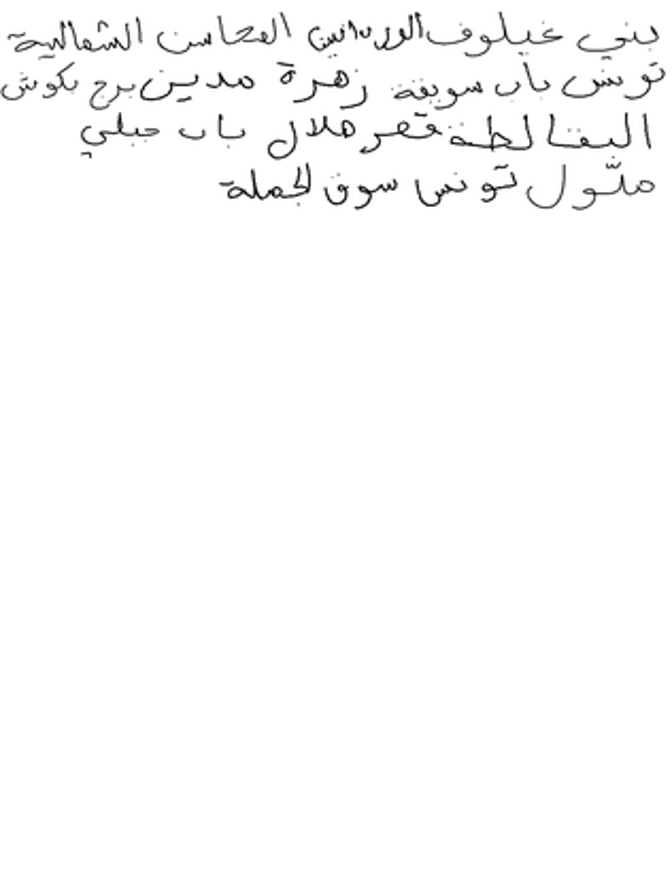 بني غيلوف الوردانين المحاسن الشمالية
تونس باب سويقة زهرة مدين برج بكوش
البقالطة قصر هلال باب جبلي
ملّول تونس سوق لجملة